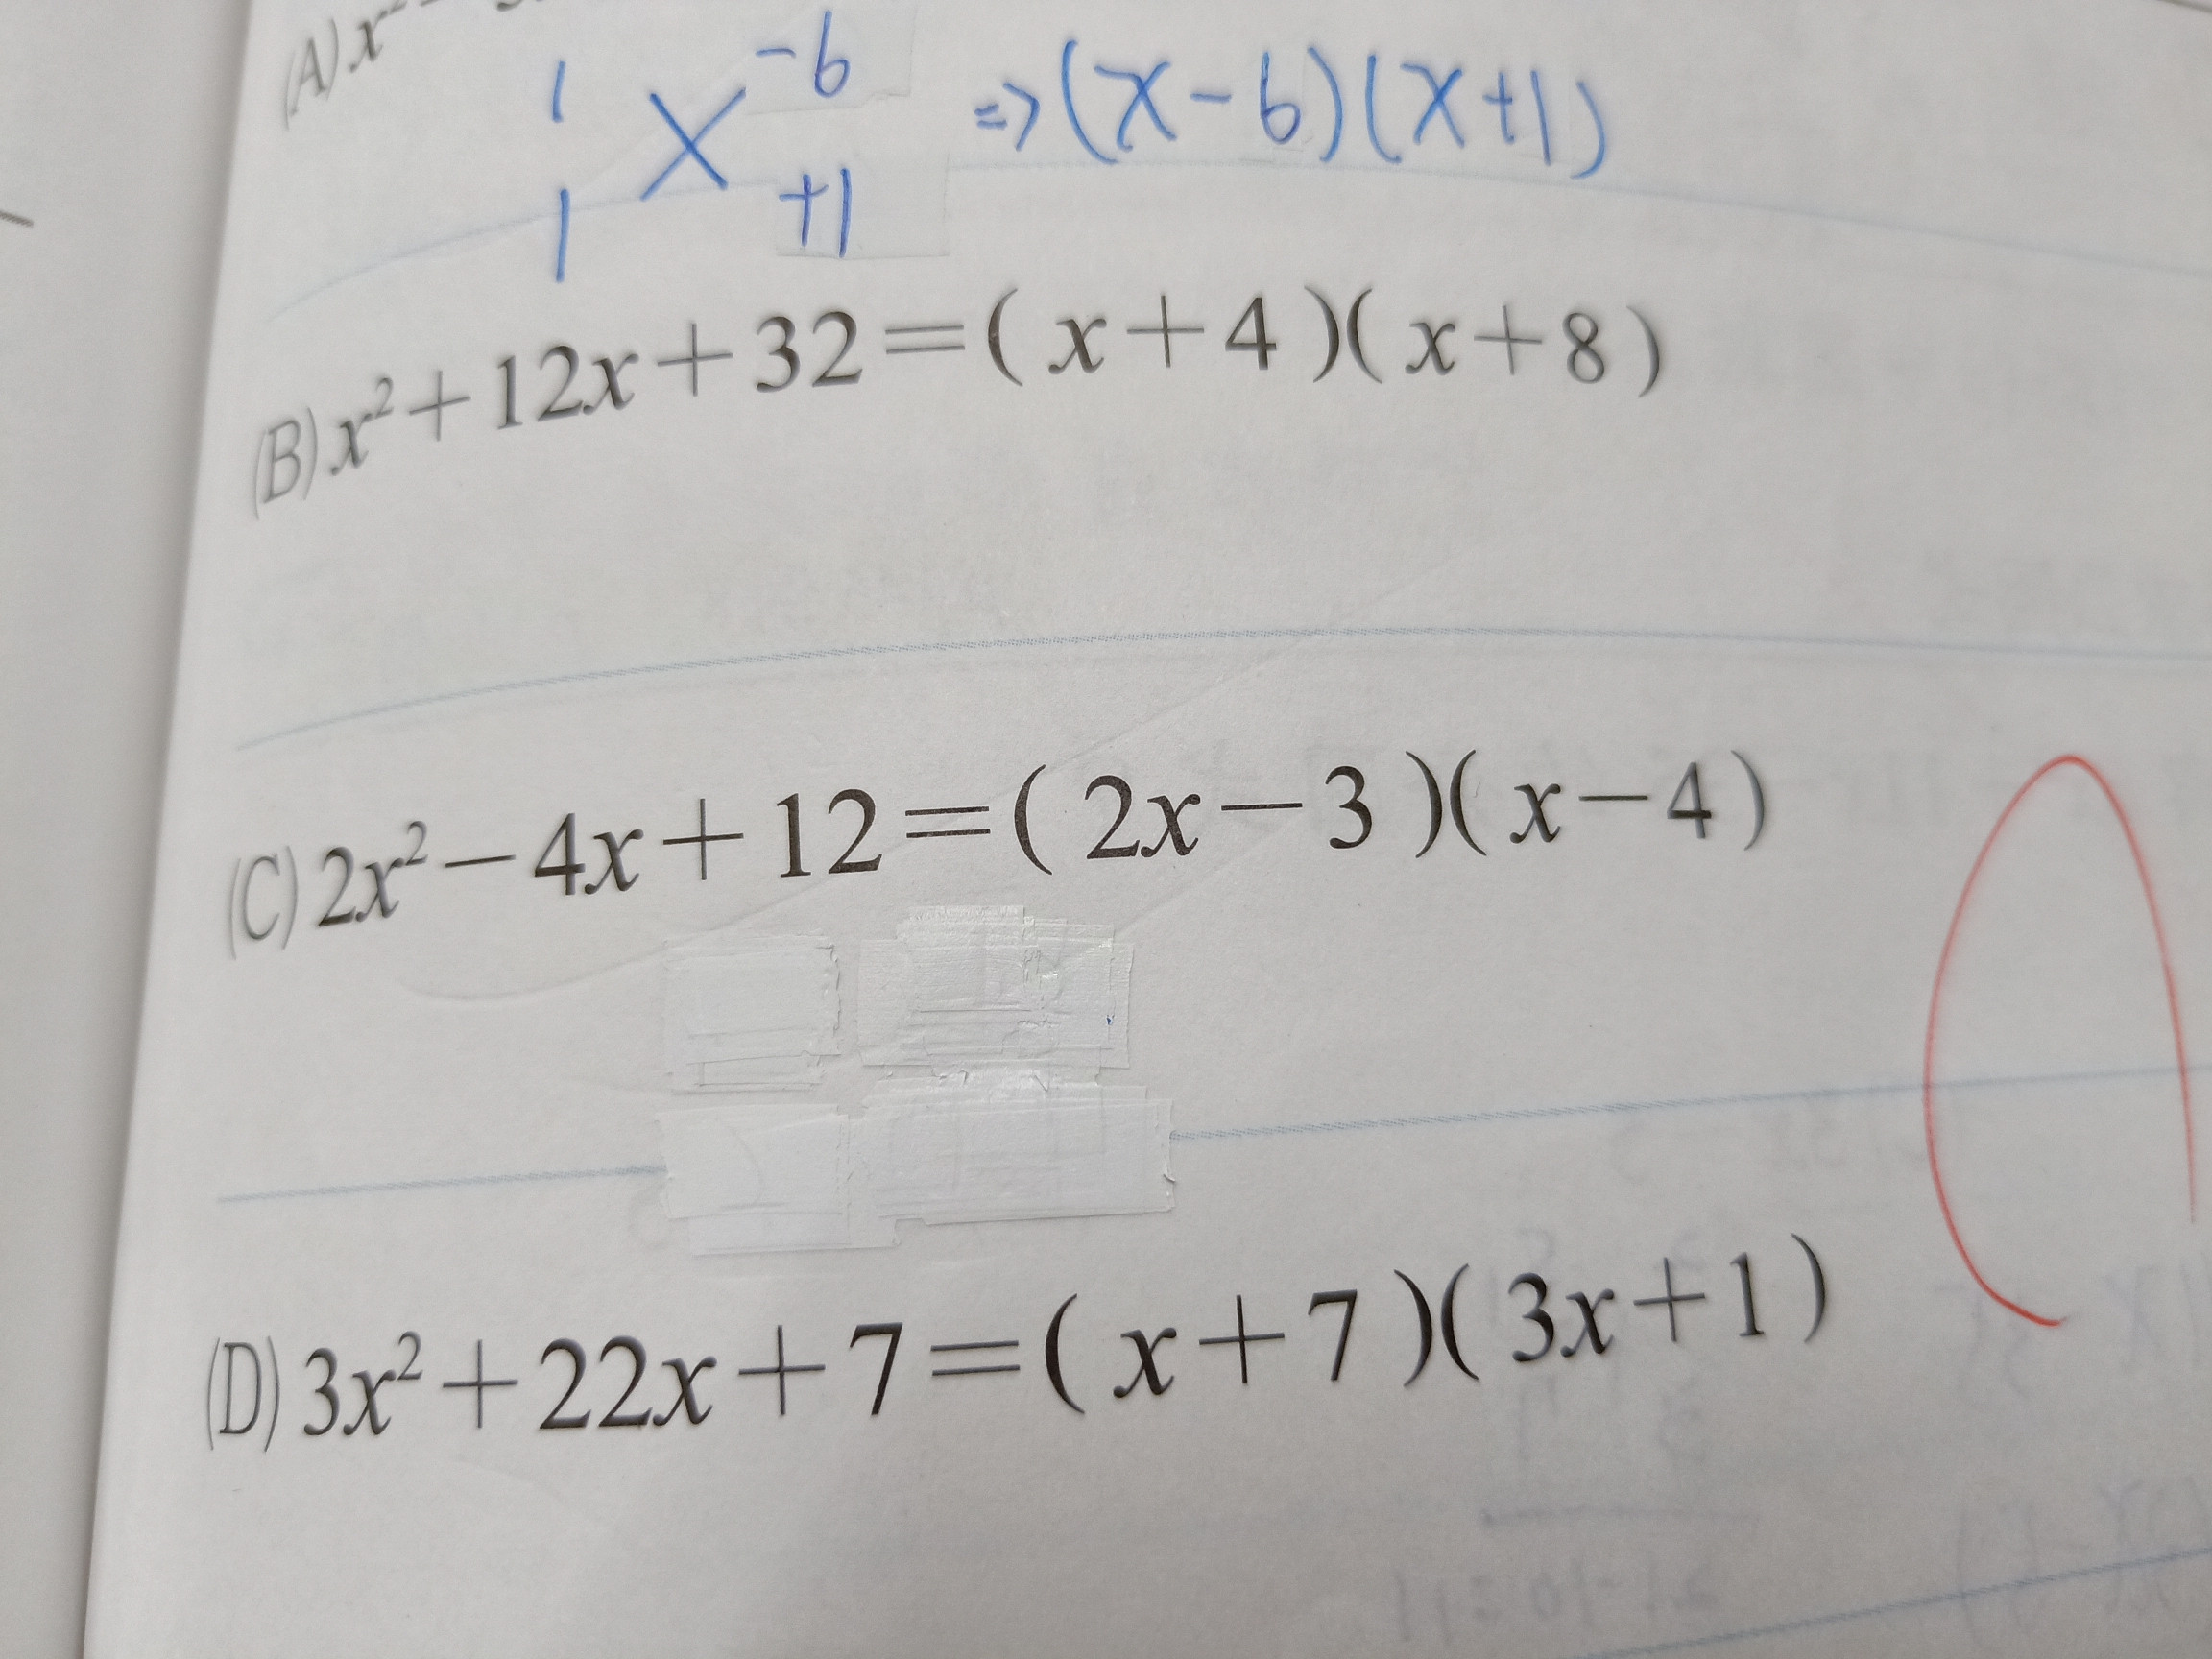 (A) x²
1 -6 ⇒ (x-6)(x+1)
1 +1
(B) x²+12x+32=( x+4 )( x+8 )
(C) 2x²-4x+12=( 2x-3 )( x-4 )
(D) 3x²+22x+7=( x+7 )( 3x+1 )